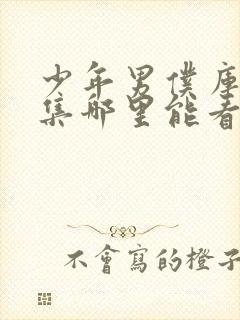 少年男僕庫
集哪里能看
不會寫的橙子